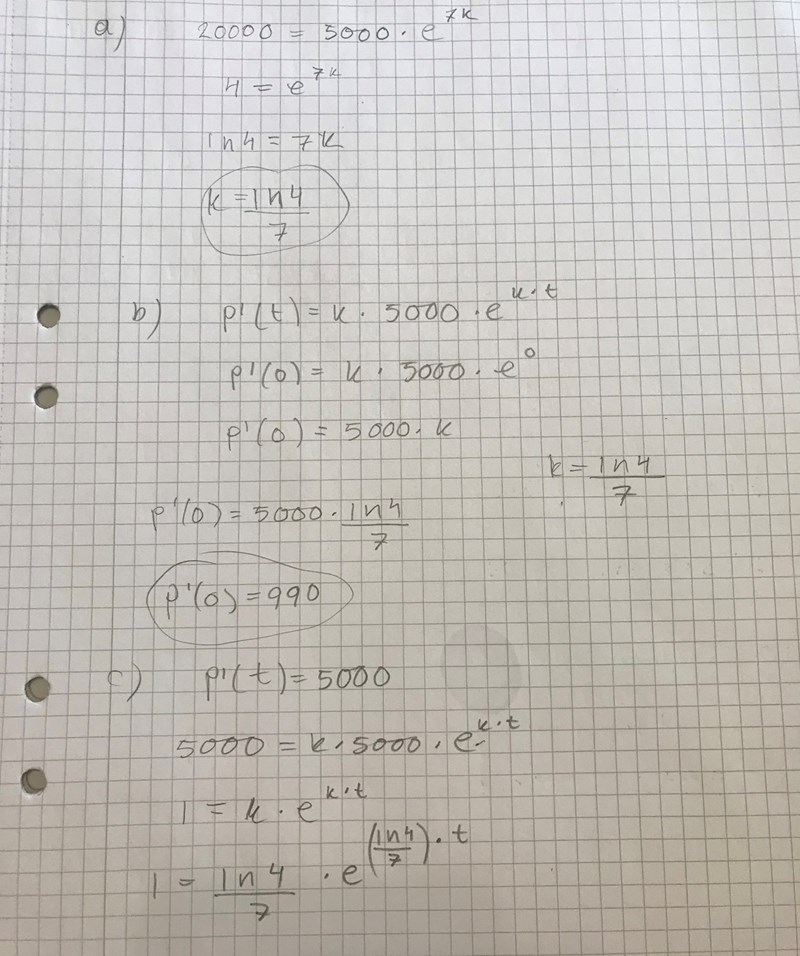 a) 20000 = 5000 · e^7k
4 = e^7k
ln4 = 7k
k = ln4/7
b) p'(t) = k · 5000 · e^k·t
p'(0) = k · 5000 · e^0
p'(0) = 5000 · k
k = ln4/7
p'(0) = 5000 · ln4/7
p'(0) = 990
c) p'(t) = 5000
5000 = k · 5000 · e^k·t
1 = k · e^k·t
1 = ln4/7 · e^(ln4/7) · t